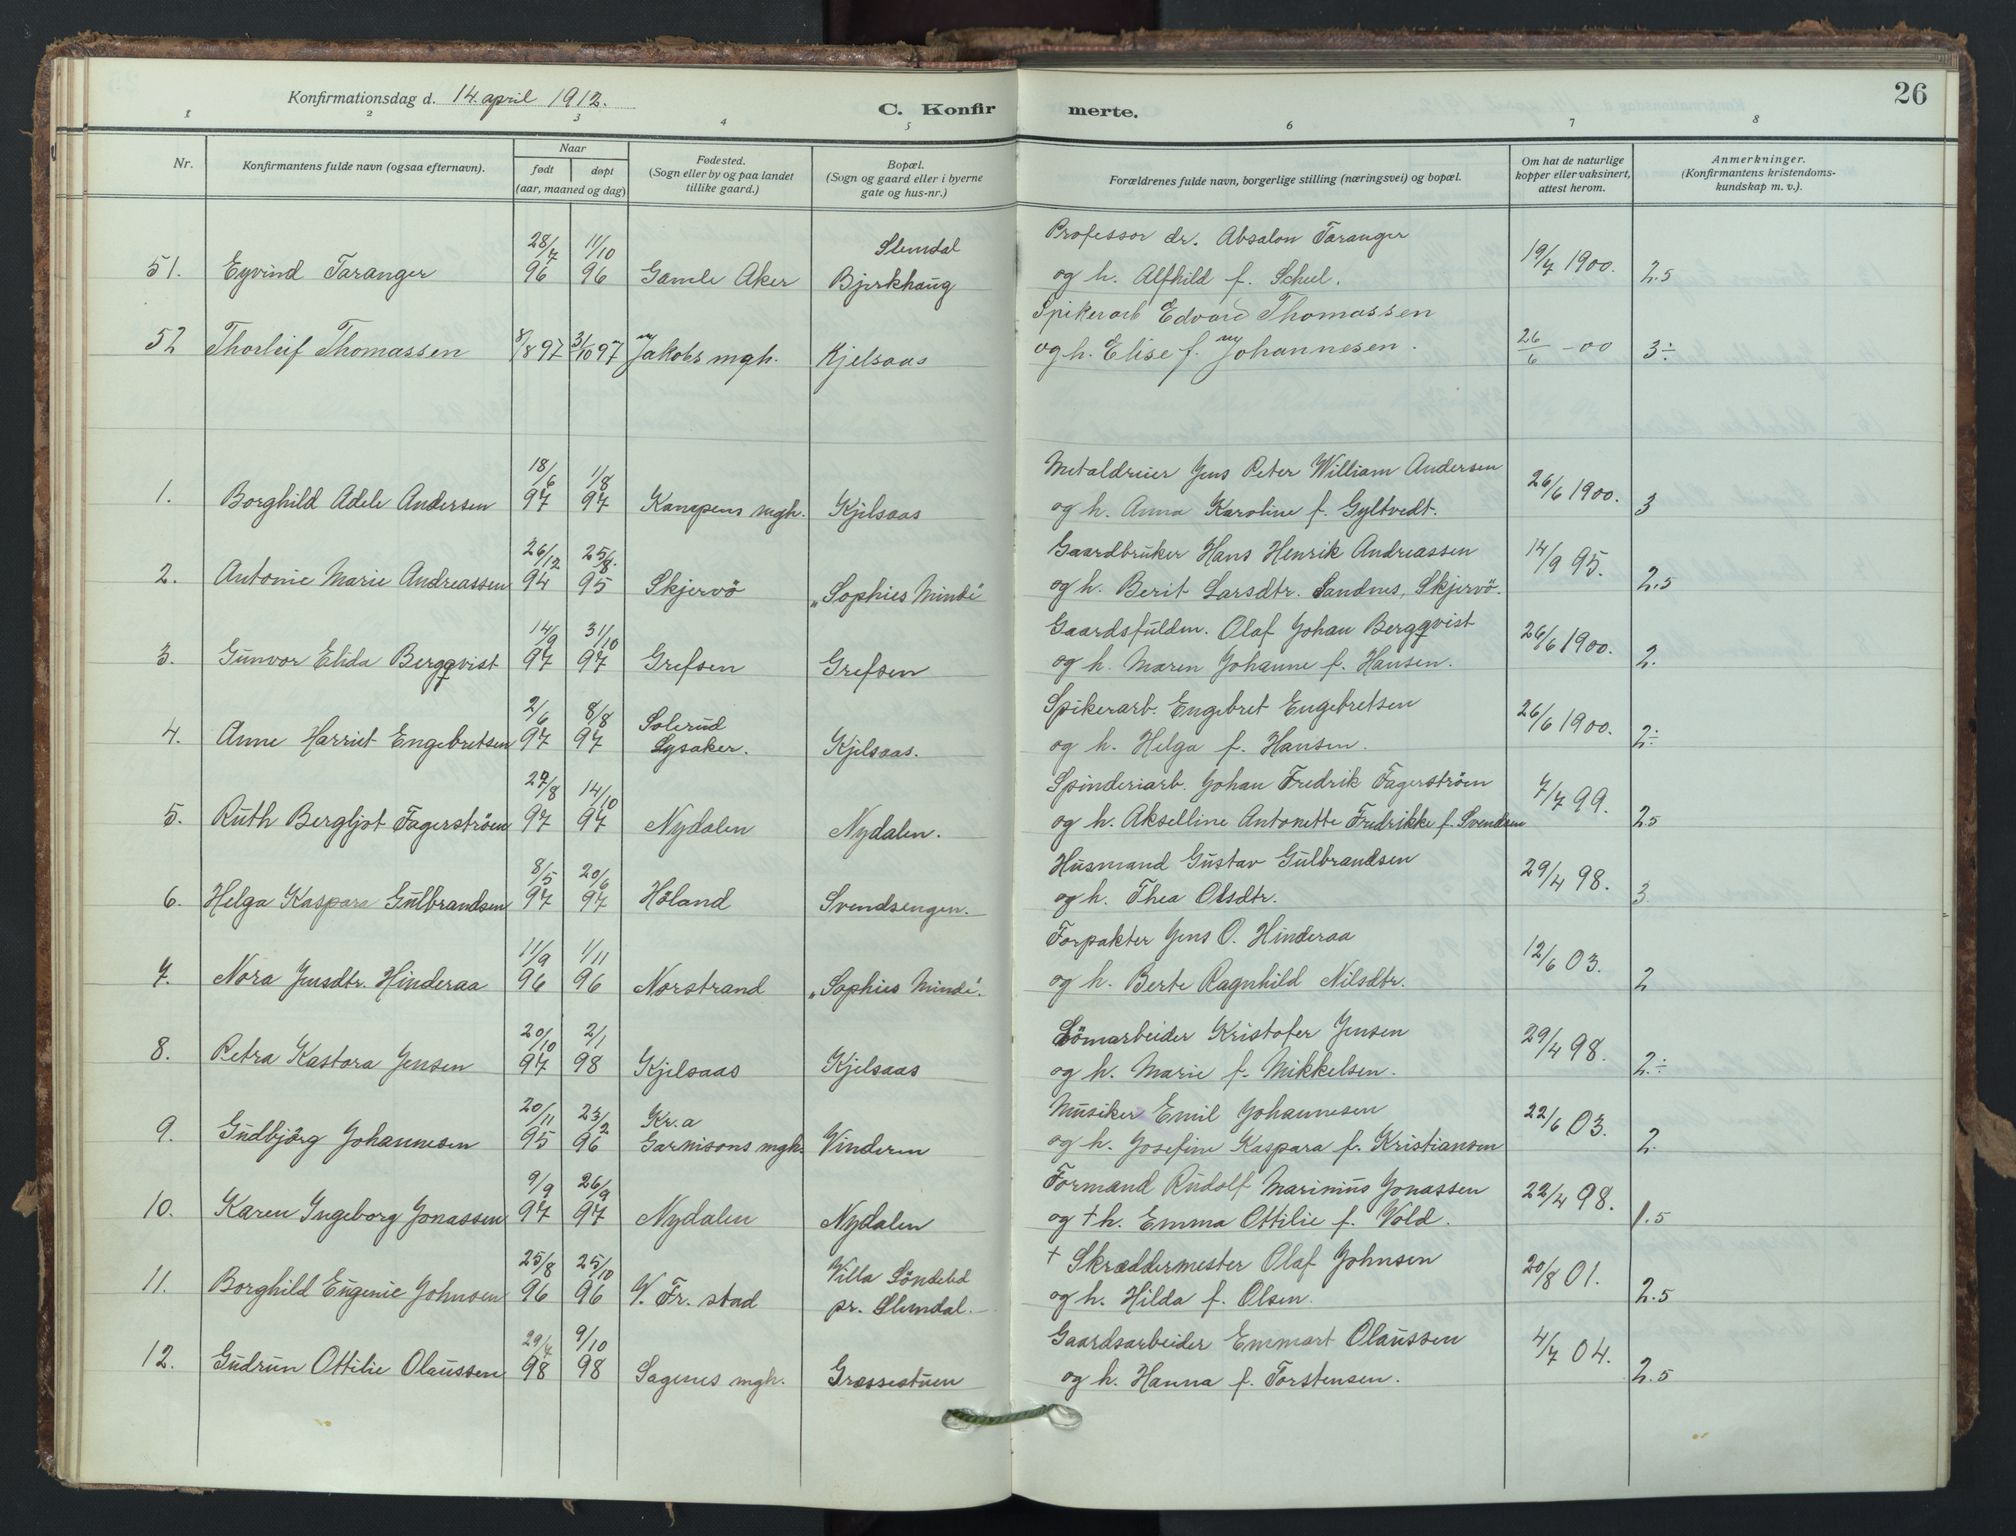 Konfirmationsdag d. 14. april 1912.
C. Konfirmerte.
26
1 2 3 4 5 6 7 8
Nr.
Konfirmantens fulde navn (ogsaa efternavn).
Naar
født døpt
(aar, maaned og dag)
Fødested.
(Sogn eller by og paa landet
tillike gaard.)
Bopæl.
(Sogn og gaard eller i byerne
gate og hus-nr.)
Forældrenes fulde navn, borgerlige stilling (næringsvei) og bopæl.
Om hat de naturlige
kopper eller vaksinert,
attest herom.
Anmerkninger.
(Konfirmantens kristendoms-
kundskap m. v.).
28/7 11/10 Slemdal Professor dr. Absalon Taranger 19/7 1900.
51. Eyvind Taranger 96 96 Gamle Aker Bjerkhaug og h. Alfhild f. Scheel. 2.5
Spikerarb Edvard Thomassen
52 Thorleif Thomassen 8/8 97 3/10 97 Jakobs mgh. Kjelsaas og h. Elise f. Johannesen. 26/6 -00 3÷
18/6 1/8 Metaldreier Jens Peter William Andersen 26/6 1900.
1. Borghild Adele Andersen 97 97 Kampens mgh. Kjelsaas og h. Anna Karoline f. Gyltvedt. 3
26/12 25/8. Gaardbruker Hans Henrik Andreassen 14/9 95.
2. Antonie Marie Andreassen 94 95 Skjervö „Sophies Minde" og h. Berit Larsdtr. Sandnes, Skjervö. 2.5
14/9 31/10 Gaardsfuldm. Olaf Johan Bergqvist 26/6 1900.
3. Gunvor Elida Bergqvist 97 97 Grefsen Grefsen og h. Maren Johanne f. Hansen. 2.
2/6 8/8 Solerud Spikerarb. Engebret Engebretsen 26/6 1900.
4. Anne Harriet Engebretsen 97 97 Lysaker. Kjelsaas. og h. Helga f. Hansen. 2÷
27/8 14/10 Spinderiarb. Johan Fredrik Fagerströen 7/7 99.
5. Ruth Bergljot Fagerströen 97 97 Nydalen Nydalen. og h. Akselline Antonette Fredrikke f. Svendsen 2.5
8/5 20/6 Husmand Gustav Gulbrandsen 29/4 98.
6. Helga Kaspara Gulbrandsen 97 97 Höland Svendsengen. og h. Thea Olsdtr. 3.
11/9 1/11 Forpakter Jens O. Hinderaa 12/6 03.
7. Nora Jensdtr. Hinderaa 96 96 Norstrand „Sophies Minde". og h. Berte Ragnhild Nilsdtr. 2
20/10 2/1 Sömarbeider Kristofer Jensen 29/4 98.
8. Petra Kastora Jensen 97 98 Kjelsaas Kjelsaas og h. Marie f. Mikkelsen. 2.÷
20/11 23/2 Kr.a Musiker Emil Johannesen 22/6 03.
9. Gudbjörg Johannesen 95 96 Garnisons mgh. Vinderen og h. Josefine Kaspara f. Kristiansen 2.
9/9 26/9 Formand Rudolf Marinius Jonassen 22/4 98.
10. Karen Ingeborg Jonassen 97 97 Nydalen Nydalen og † h. Emma Ottilie f. Vold. 1.5
25/8 25/10 Villa Söndeled † Skræddermester Olaf Johnsen 20/8 01.
11. Borghild Eugenie Johnsen 96 96 V. Fr. stad pr. Slemdal. og h. Hilda f. Olsen. 2.5
29/7 9/10 Gaardsarbeider Emmart Olaussen 4/7 04.
12. Gudrun Ottilie Olaussen 98 98 Sagenes mgh. Græssestuen og h. Hanna f. Torstensen. 2.5